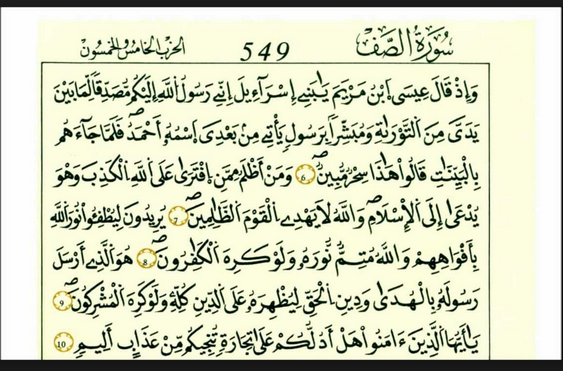 سُورَةُ الصَّفِّ 549 الحزب الخامس والخمسون
وَإِذْ قَالَ عِيسَى اَبْنُ مَرْيَمَ يَٰبَنِے إِسْرَآءِيلَ إِنِّے رَسُولُ اُللَّهِ إِلَيْكُم مُّصَدِّقاٗ لِّمَا بَيْنَ
يَدَىَّ مِنَ اَلتَّوْرَيٰةِ وَمُبَشِّراَۢ بِرَسُولٖ يَأْتِے مِنۢ بَعْدِىَ اَسْمُهُۥٓ أَحْمَدُۖ فَلَمَّا جَآءَهُم
بِالْبَيِّنَٰتِ قَالُواْ هَٰذَا سِحْرٞ مُّبِينٞۖ 6 وَمَنْ أَظْلَمُ مِمَّنِ اِفْتَرَىٰ عَلَى اَللَّهِ اِلْكَذِبَ وَهُوَ
يُدْعَىٰٓ إِلَى اَلْإِسْلَٰمِۖ وَاللَّهُ لَا يَهْدِے اِلْقَوْمَ اَلظَّٰلِمِينَۖ 7 يُرِيدُونَ لِيُطْفِـُٔواْ نُورَ اَللَّهِ
بِأَفْوَٰهِهِمْ وَاللَّهُ مُتِمّٞ نُّورَهُۥ وَلَوْ كَرِهَ اَلْكَٰفِرُونَۖ 8 هُوَ اَلذِے أَرْسَلَ
رَسُولَهُۥ بِالْهُدَىٰ وَدِينِ اِلْحَقِّ لِيُظْهِرَهُۥ عَلَى اَلدِّينِ كُلِّهِۦ وَلَوْ كَرِهَ اَلْمُشْرِكُونَۖ 9
يَٰٓأَيُّهَا اَلذِينَ ءَامَنُواْ هَلْ أَدُلُّكُمْ عَلَىٰ تِجَٰرَةٖ تُنجِيكُم مِّنْ عَذَابٍ أَلِيمٖۖ 10